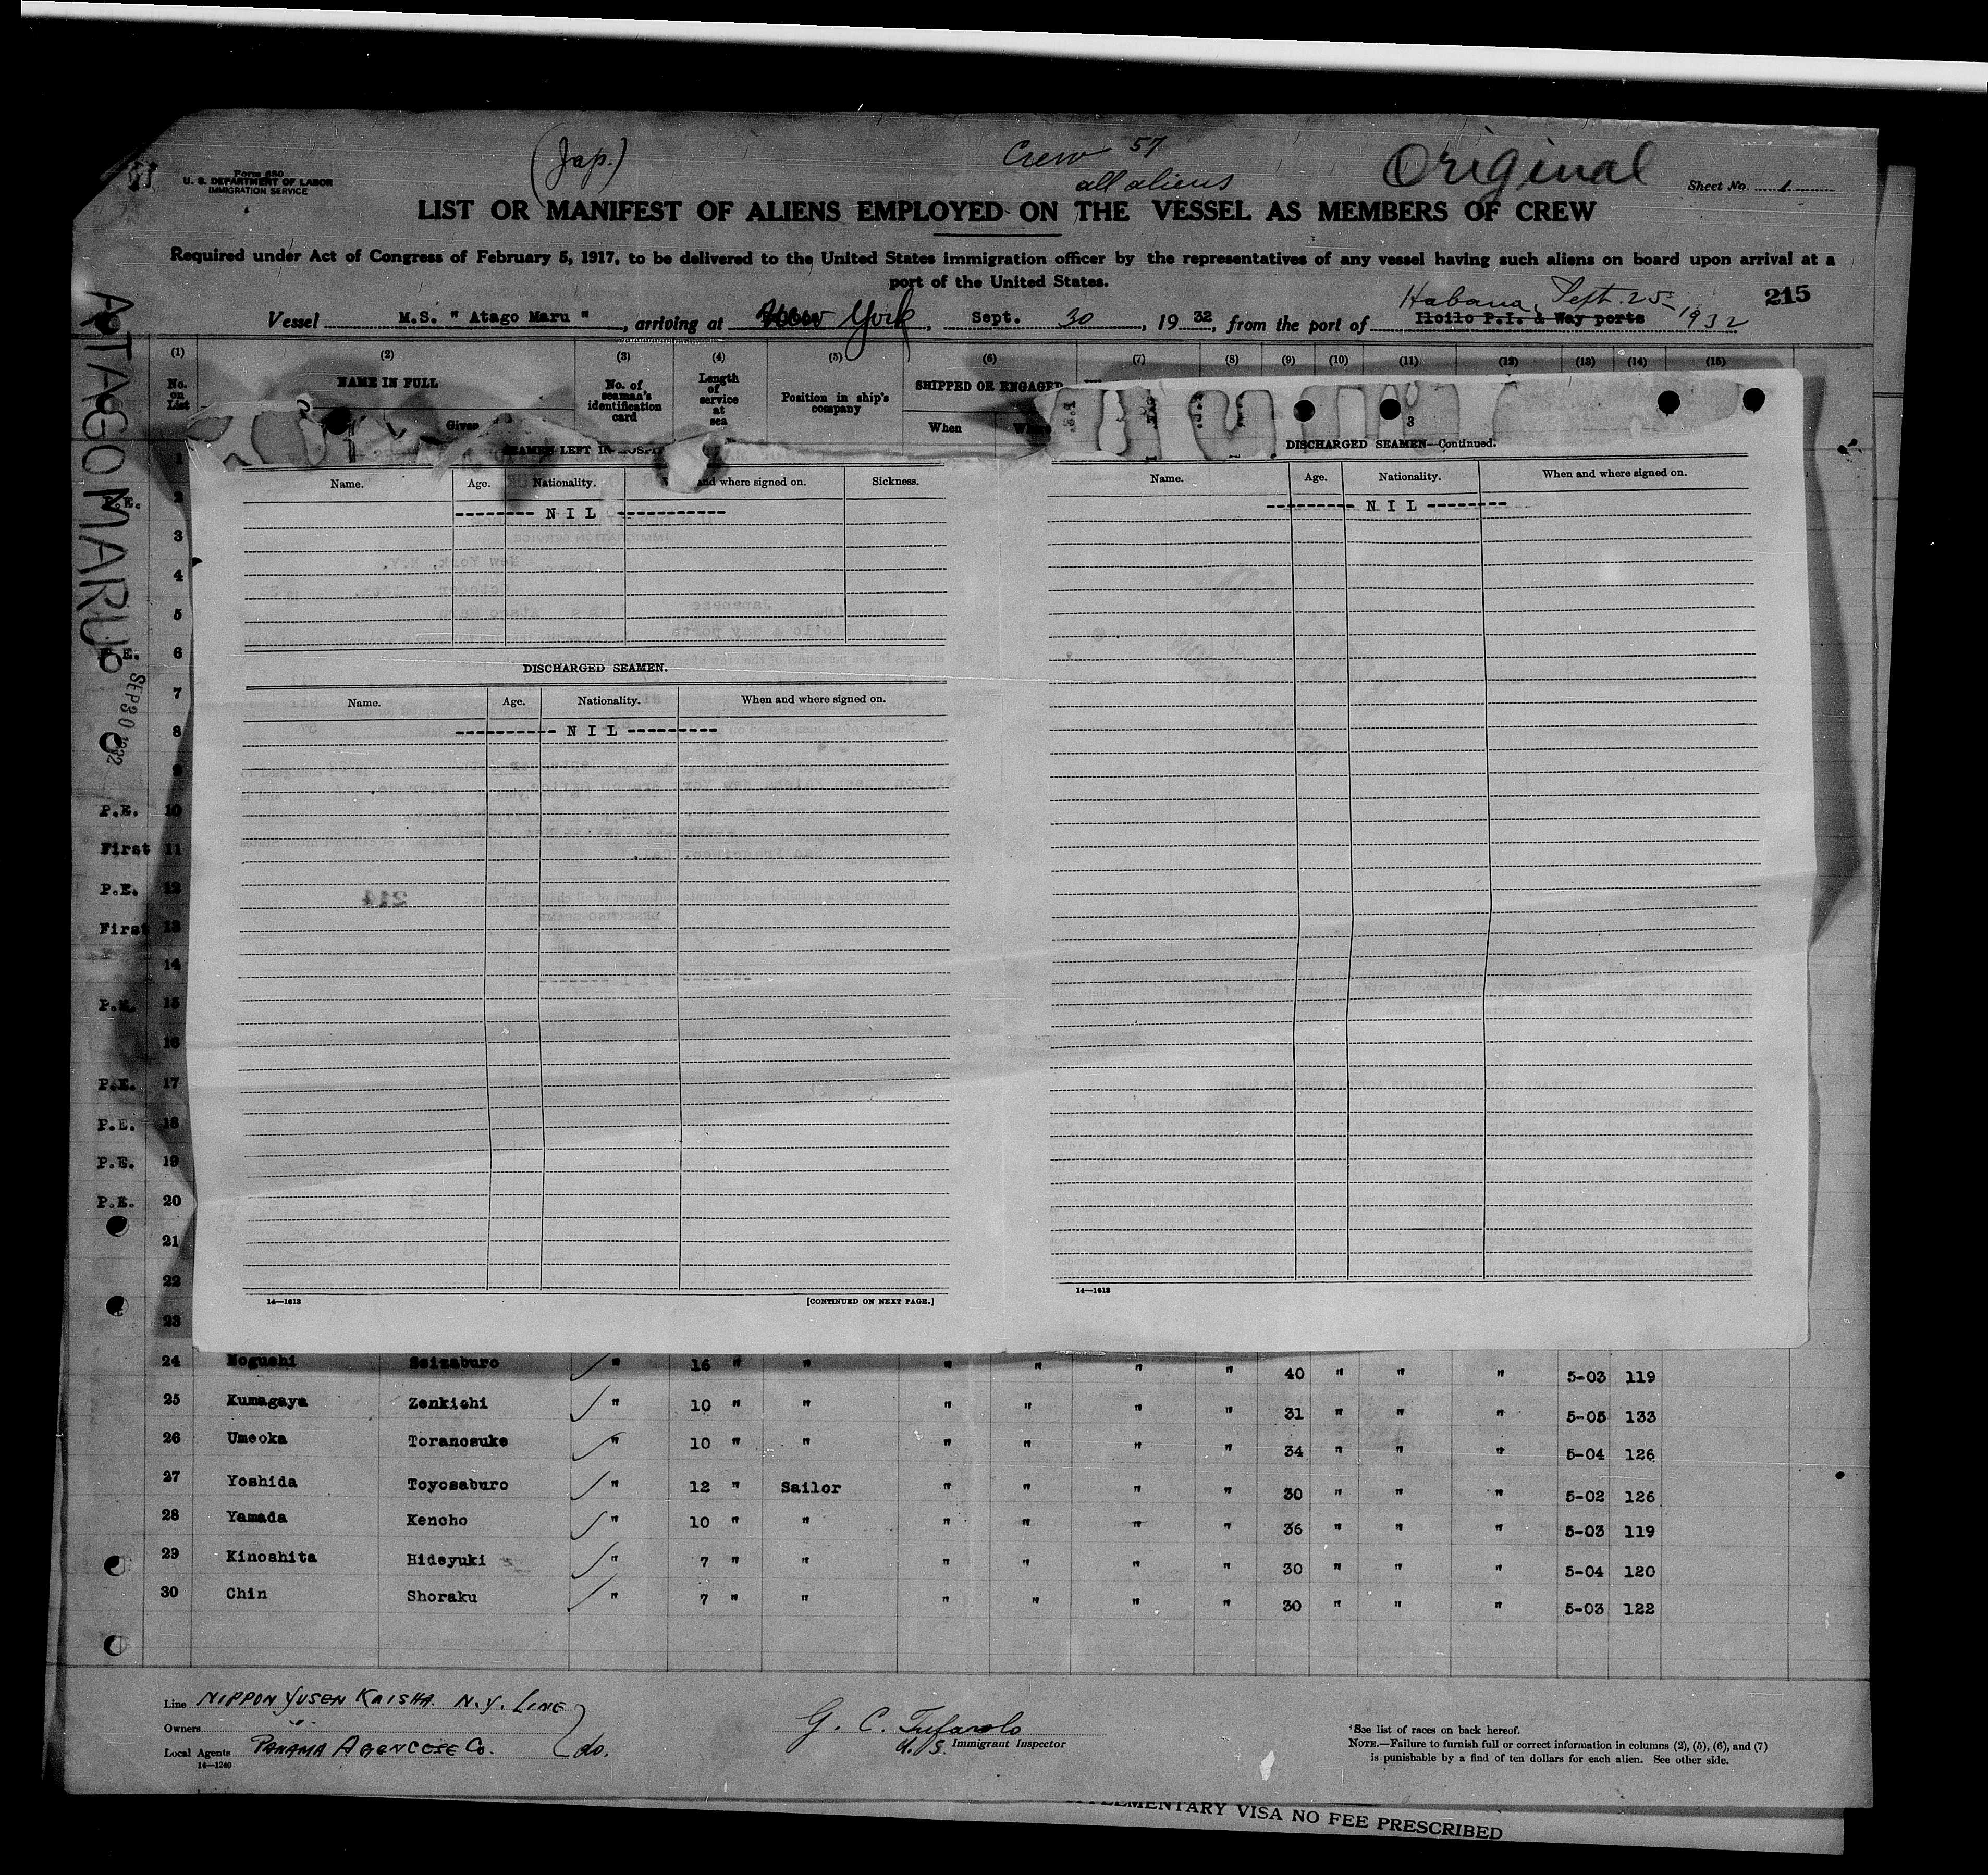 (Jap.)
Crew 57
all aliens
Original
Form 680
U. S. DEPARTMENT OF LABOR
IMMIGRATION SERVICE
Sheet No. 1
LIST OR MANIFEST OF ALIENS EMPLOYED ON THE VESSEL AS MEMBERS OF CREW
Required under Act of Congress of February 5, 1917, to be delivered to the United States immigration officer by the representatives of any vessel having such aliens on board upon arrival at a
port of the United States.
215
Habana, Sept. 25 1932
Vessel M.S. " Atago Maru ", arriving at New York, Sept. 30, 19 32, from the port of Iloilo P.I. & Way ports
ATAGO MARU
SEP 30 1932
(1) (2) (3) (4) (5) (6) (7) (8) (9) (10) (11) (12) (13) (14) (15)
No. on List
NAME IN FULL
Given
No. of seaman's identification card
Length of service at sea
Position in ship's company
SHIPPED OR ENGAGED
When
SEAMEN LEFT IN
Name. Age. Nationality. and where signed on. Sickness.
NIL
DISCHARGED SEAMEN.
Name. Age. Nationality. When and where signed on.
NIL
14—1613
[CONTINUED ON NEXT PAGE.]
3
DISCHARGED SEAMEN—Continued.
Name. Age. Nationality. When and where signed on.
NIL
14—1613
1
2
3
4
5
6
7
8
9
P.E. 10
First 11
P.E. 12
First 13
14
P.E. 15
16
P.E. 17
P.E. 18
P.E. 19
P.E. 20
21
22
23
24 Noguchi Seizaburo " 16 " " " " " " 40 " " " 5-03 119
25 Kumagaya Zenkichi " 10 " " " " " " 31 " " " 5-05 133
26 Umeoka Toranosuke " 10 " " " " " " 34 " " " 5-04 126
27 Yoshida Toyosaburo " 12 " Sailor " " " " 30 " " " 5-02 126
28 Yamada Kencho " 10 " " " " " " 36 " " " 5-03 119
29 Kinoshita Hideyuki " 7 " " " " " " 30 " " " 5-04 120
30 Chin Shoraku " 7 " " " " " " 30 " " " 5-03 122
Line NIPPON YUSEN KAISHA N.Y. LINE
Owners " do.
Local Agents PANAMA AGENCIES Co.
14—1240
G. C. Tufarolo
U. S. Immigrant Inspector
¹See list of races on back hereof.
NOTE.—Failure to furnish full or correct information in columns (2), (5), (6), and (7)
is punishable by a find of ten dollars for each alien. See other side.
VISA NO FEE PRESCRIBED